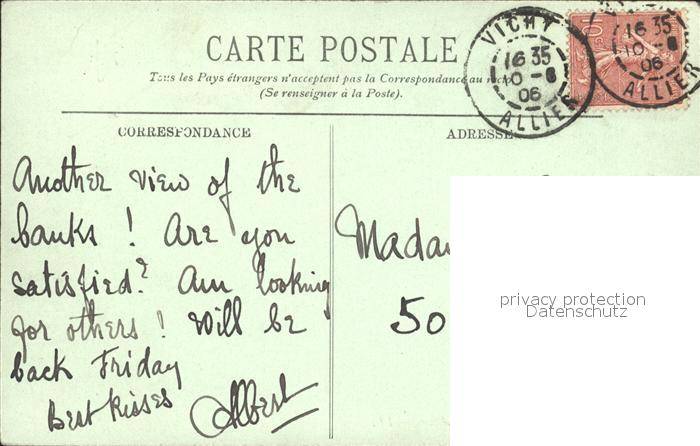 CARTE POSTALE
Tous les Pays étrangers n'acceptent pas la Correspondance au recto
(Se renseigner à la Poste).
CORRESPONDANCE
ADRESSE
VICHY
16 35
10 -8
06
ALLIER
16 35
10 -8
06
ALLIER
Another view of the
banks! Are you
satisfied? Am looking
for others! Will be
back Friday
Best kisses Albert
Madam
50
privacy protection
Datenschutz